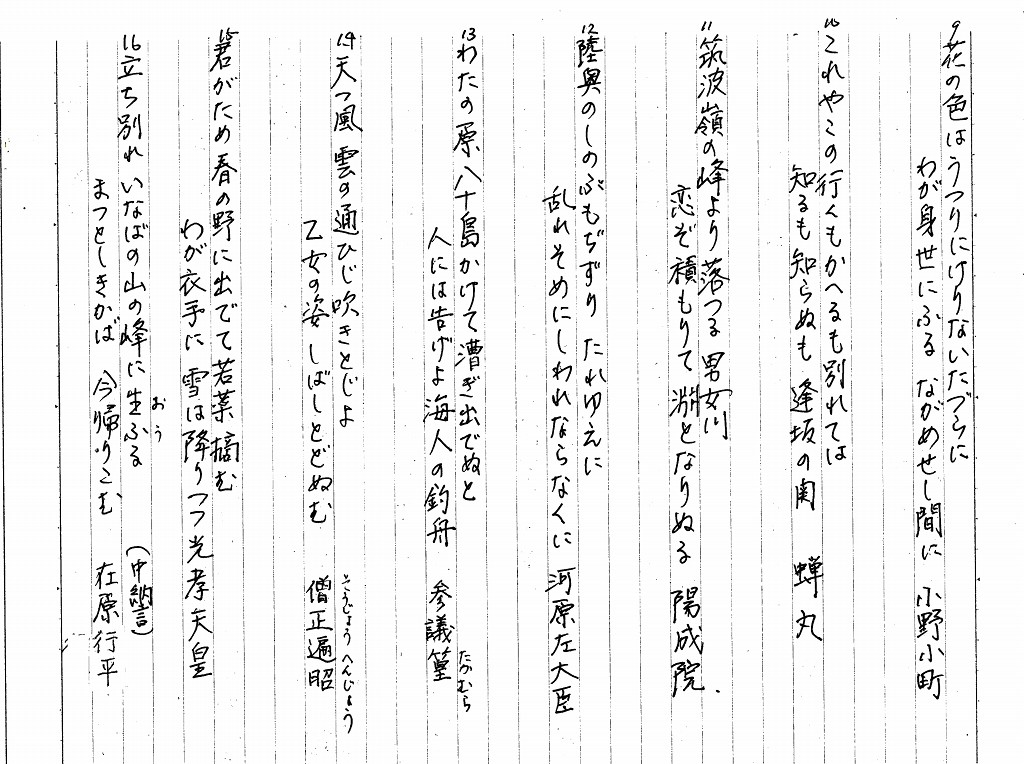 9花の色はうつりにけりないたづらに
わが身世にふる ながめせし間に 小野小町
10これやこの行くもかへるも別れては
知るも知らぬも 逢坂の関 蝉丸
11筑波嶺の峰より落つる男女川
恋ぞ積もりて淵となりぬる 陽成院.
12陸奥のしのぶもぢずり たれゆえに
乱れそめにしわれならなくに 河原左大臣
13わたの原八十島かけて漕ぎ出でぬと
人には告げよ海人の釣舟 参議篁
たかむら
14天つ風 雲の通ひじ吹きとじよ
乙女の姿 しばしとどめむ 僧正遍昭
そうじょうへんじょう
15君がため春の野に出でて若菜摘む
わが衣手に 雪は降りつつ 光孝天皇
16立ち別れ いなばの山の峰に生ふる (中納言)
おう
まつとしきかば 今帰りこむ 在原行平